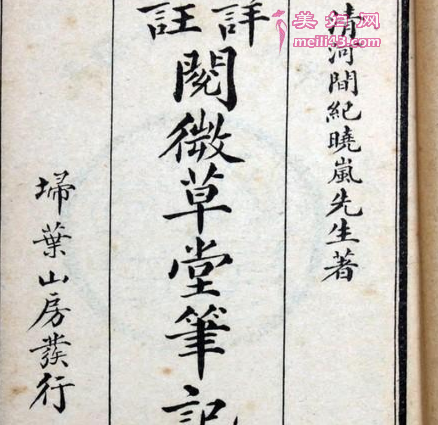 清河間紀曉嵐先生著
詳註
閱微草堂筆記
掃葉山房發行
美丽网
meili43.com